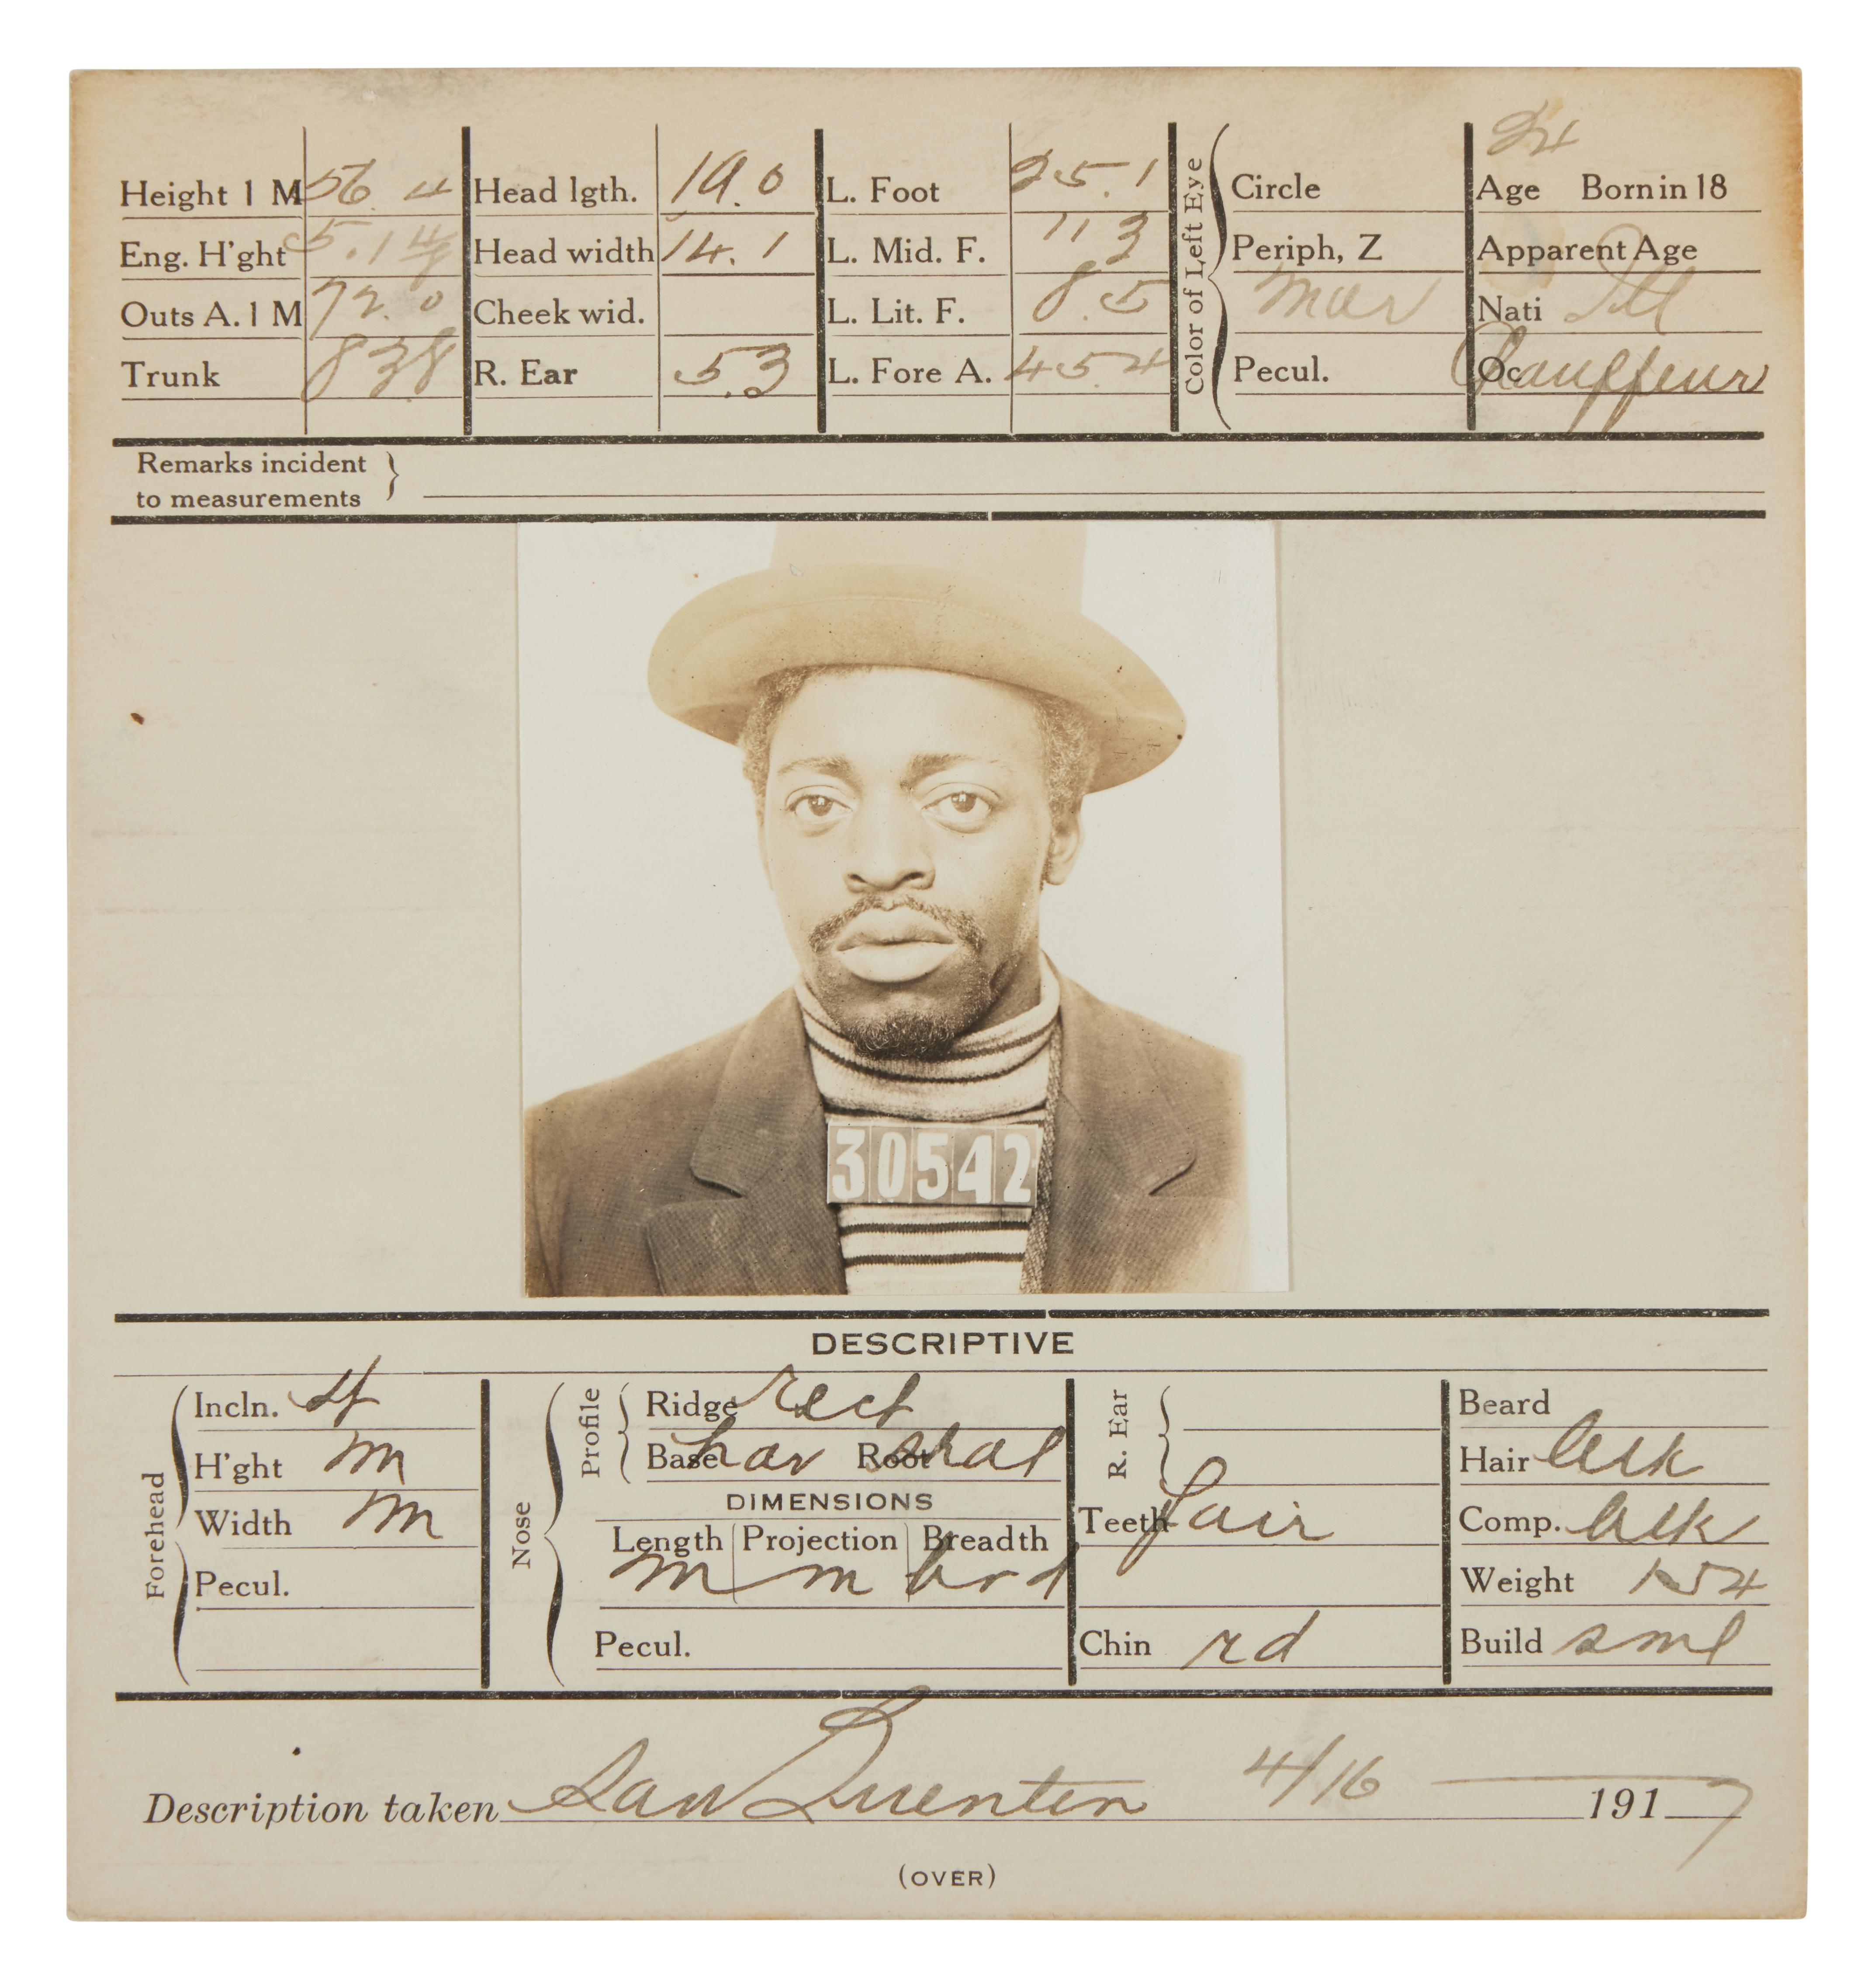 24
Height 1 M 56.4 Head lgth. 19.0 L. Foot 25.1 Circle Age Born in 18
Eng. H'ght 5.1 Head width 14.1 L. Mid. F. 11 3 Periph, Z Apparent Age
Outs A. 1 M 72.0 Cheek wid. L. Lit. F. 8.5 mar Nati Ill
Trunk 838 R. Ear 5.3 L. Fore A. 45.4 Pecul. Oc Chauffeur
Color of Left Eye
Remarks incident
to measurements
30542
DESCRIPTIVE
Forehead
Incln.
H'ght m
Width m
Pecul.
Nose
Profile
Ridge rect
Base hor Root
DIMENSIONS
Length Projection Breadth
m m brd
Pecul.
R. Ear
Teeth fair
Chin rd
Beard
Hair blk
Comp. blk
Weight 154
Build sml
Description taken San Quenten 4/16 1917
(OVER)